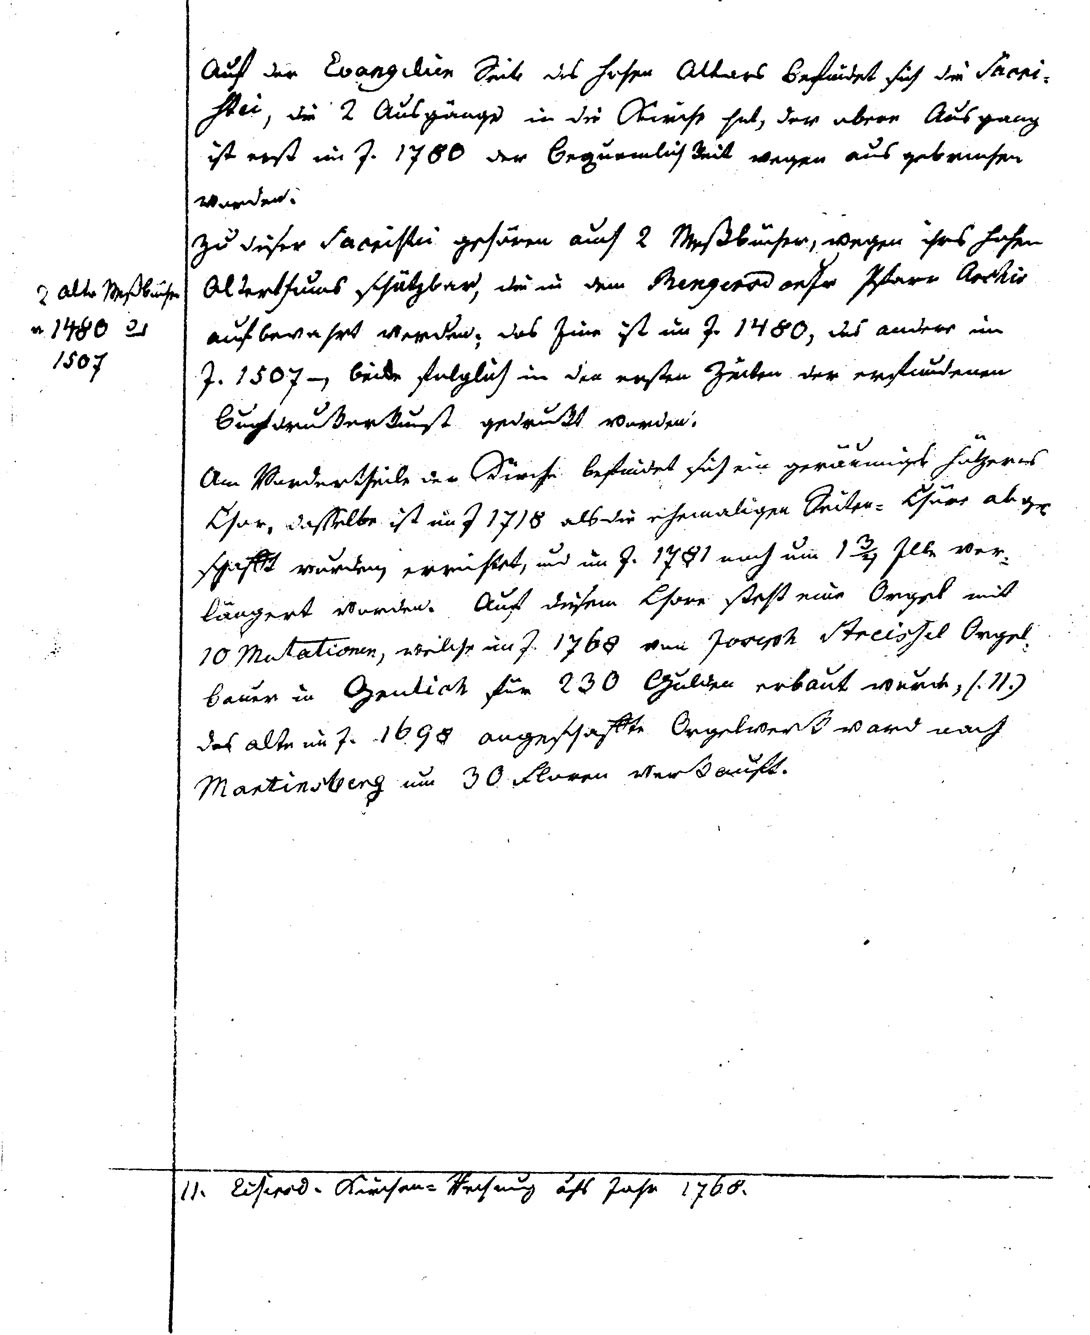 Auf der Evangelien Seite des hohen Altars befindet sich die Sacri-
stei, die 2 Ausgänge in die Kirche hat, der obere Ausgang
ist erst im J. 1780 der Bequemlichkeit wegen ausgebrochen
worden.
Zu dieser Sacristei gehören auch 2 Meßbücher, wegen ihrs hohen
2 alte Meßbücher
Alterthums schätzbar, die in dem Pfarr Archiv
v. 1480 u
aufbewahrt werden; das Eine ist im J. 1480, das andere im
1507
J. 1507 –, beide folglich in den ersten Zeiten der erfundenen
Buchdrukerkunst gedrukt worden.
Am Vordertheile der Kirche befindet sich ein geräumiges hölzernes
Chor, dasselbe ist im J 1718 als die ehemaligen Seiten= Chöre abge
schafft wurden, errichtet, und im J. 1781 noch um 1 3/4 Elle ver-
längert worden. Auf diesem Chore steht eine Orgel mit
10 Mutationen, welche im J. 1768 von Joseph Orgel-
bauer in für 230 Gulden erbaut wurde, (. 11.)
das alte im J. 1698 angeschaffte Orgelwerk ward nach
Martinsberg um 30 Floren verkauft.
11. Kirchen= Rechnung Jahr 1768.